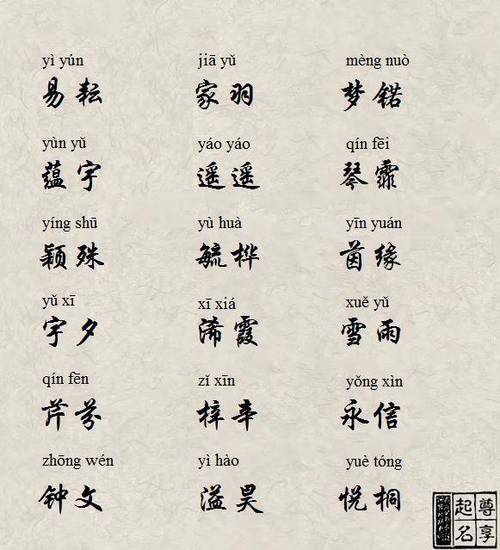 yì yún jiā yǔ mèng nuò
易耘 家羽 梦锘
yùn yǔ yáo yáo qín fēi
蕴宇 遥遥 琴霏
yíng shū yù huà yīn yuán
颖殊 毓桦 茵缘
yǔ xī xī xiá xuě yǔ
宇夕 浠霞 雪雨
qín fēn zǐ xīn yǒng xìn
芹芬 梓辛 永信
zhōng wén yì hào yuè tóng
钟文 溢昊 悦桐
尊享
起名